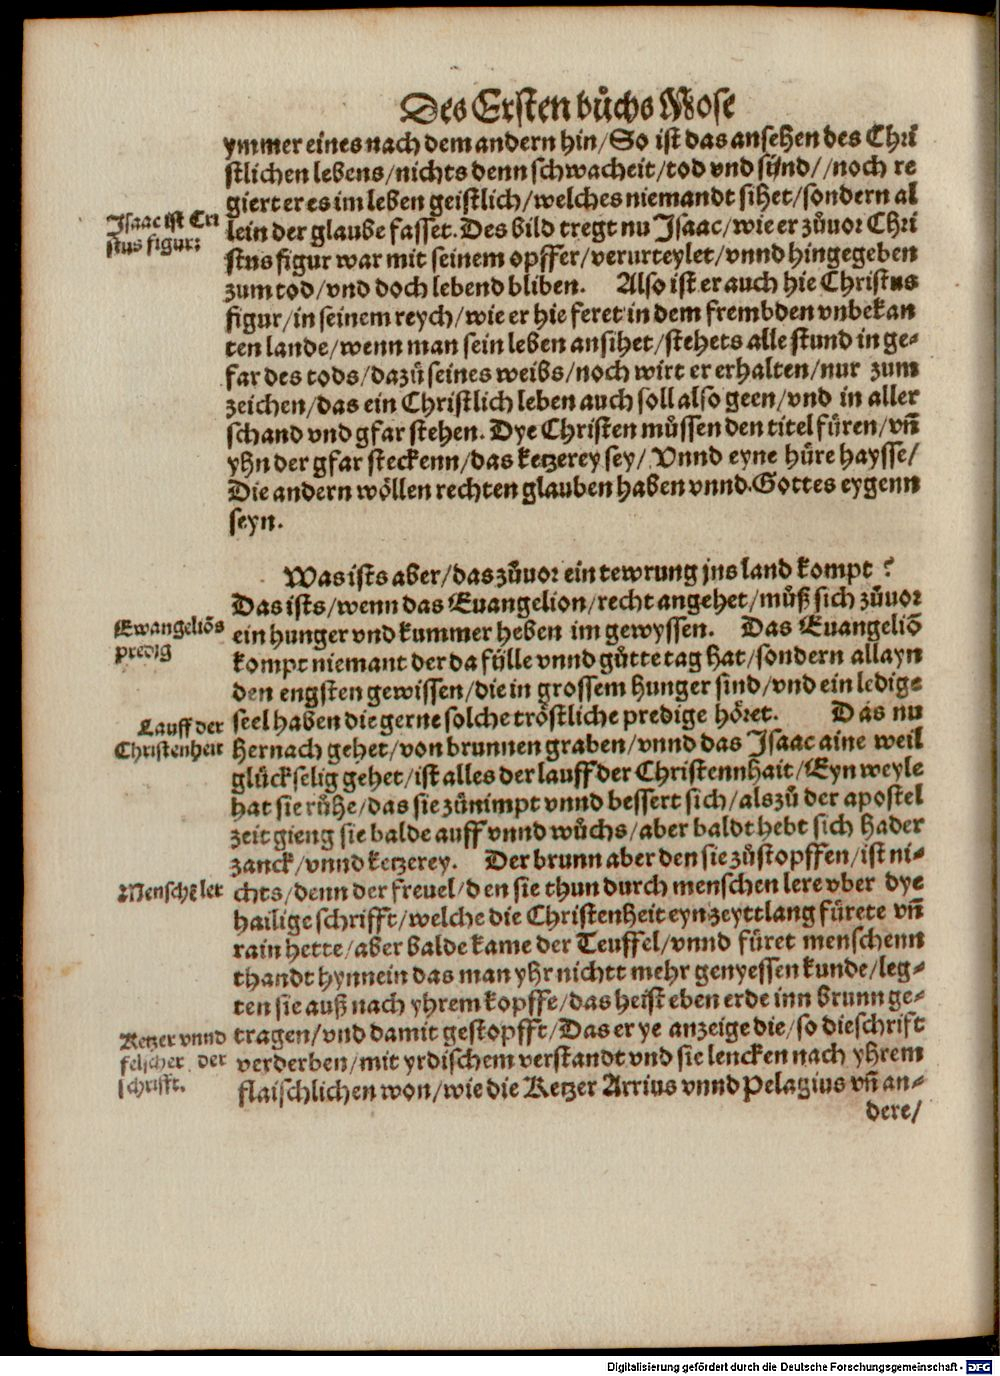 Des Ersten bůchs Mose
ymmer eines nach dem andern hin/So ist das ansehen des Chri
stlichen lebens/nichts denn schwacheit/tod vnd sünd//noch re
giert er es im leben geistlich/welches niemandt sihet/sondern al
Isaac ist Cri
stus figur:
lein der glaube fasset. Des bild tregt nu Isaac/wie er zůuor Chri
stus figur war mit seinem opffer/verurteylet/vnnd hingegeben
zum tod/vnd doch lebend bliben. Also ist er auch hie Christus
figur/in seinem reych/wie er hie feret in dem frembden vnbekan
ten lande/wenn man sein leben ansihet/stehets alle stund in ge-
far des tods/dazů seines weibs/noch wirt er erhalten/nur zum
zeichen/das ein Christlich leben auch soll also geen/vnd in aller
schand vnd gfar stehen. Dye Christen müssen den titel füren/vñ
yhn der gfar steckenn/das ketzerey sey/ Vnnd eyne hůre haysse/
Die andern wöllen rechten glauben haben vnnd Gottes eygenn
seyn.
Was ists aber/das zůuor ein tewrung jns land kompt?
Das ists/wenn das Euangelion/recht angehet/můß sich zůuor
Ewangeliõs
predig
ein hunger vnd kummer heben im gewyssen. Das Euangeliõ
kompt niemant der da fülle vnnd gůtte tag hat/sondern allayn
den engsten gewissen/die in grossem hunger sind/vnd ein ledige
Lauff der
Christenheit
seel haben die gerne solche tröstliche predige höret. Das nu
hernach gehet/von brunnen graben/vnnd das Isaac aine weil
glückselig gehet/ist alles der lauff der Christennhait/Eyn weyle
hat sie růhe/das sie zůnimpt vnnd bessert sich/als zů der apostel
zeit gieng sie balde auff vnnd wůchs/aber baldt hebt sich hader
zanck/vnnd ketzerey. Der brunn aber den sie zůstopffen/ist ni-
Menschẽ ler
chts/denn der freuel/den sie thun durch menschen lere vber dye
hailige schrifft/welche die Christenheit eyn zeyttlang fürete vñ
rain hette/aber balde kame der Teuffel/vnnd füret menschenn
thandt hynnein das man yhr nichtt mehr genyessen kunde/leg-
ten sie auß nach yhrem kopffe/das heist eben erde inn brunn ge-
Ketzer vnnd
felscher der
schrifft.
tragen/vnd damit gestopfft/Das er ye anzeige die/so die schrift
verderben/mit yrdischem verstandt vnd sie lencken nach yhrem
flaischlichen won/wie die Ketzer Arrius vnnd Pelagius vñ an-
dere/
Digitalisierung gefördert durch die Deutsche Forschungsgemeinschaft - DFG